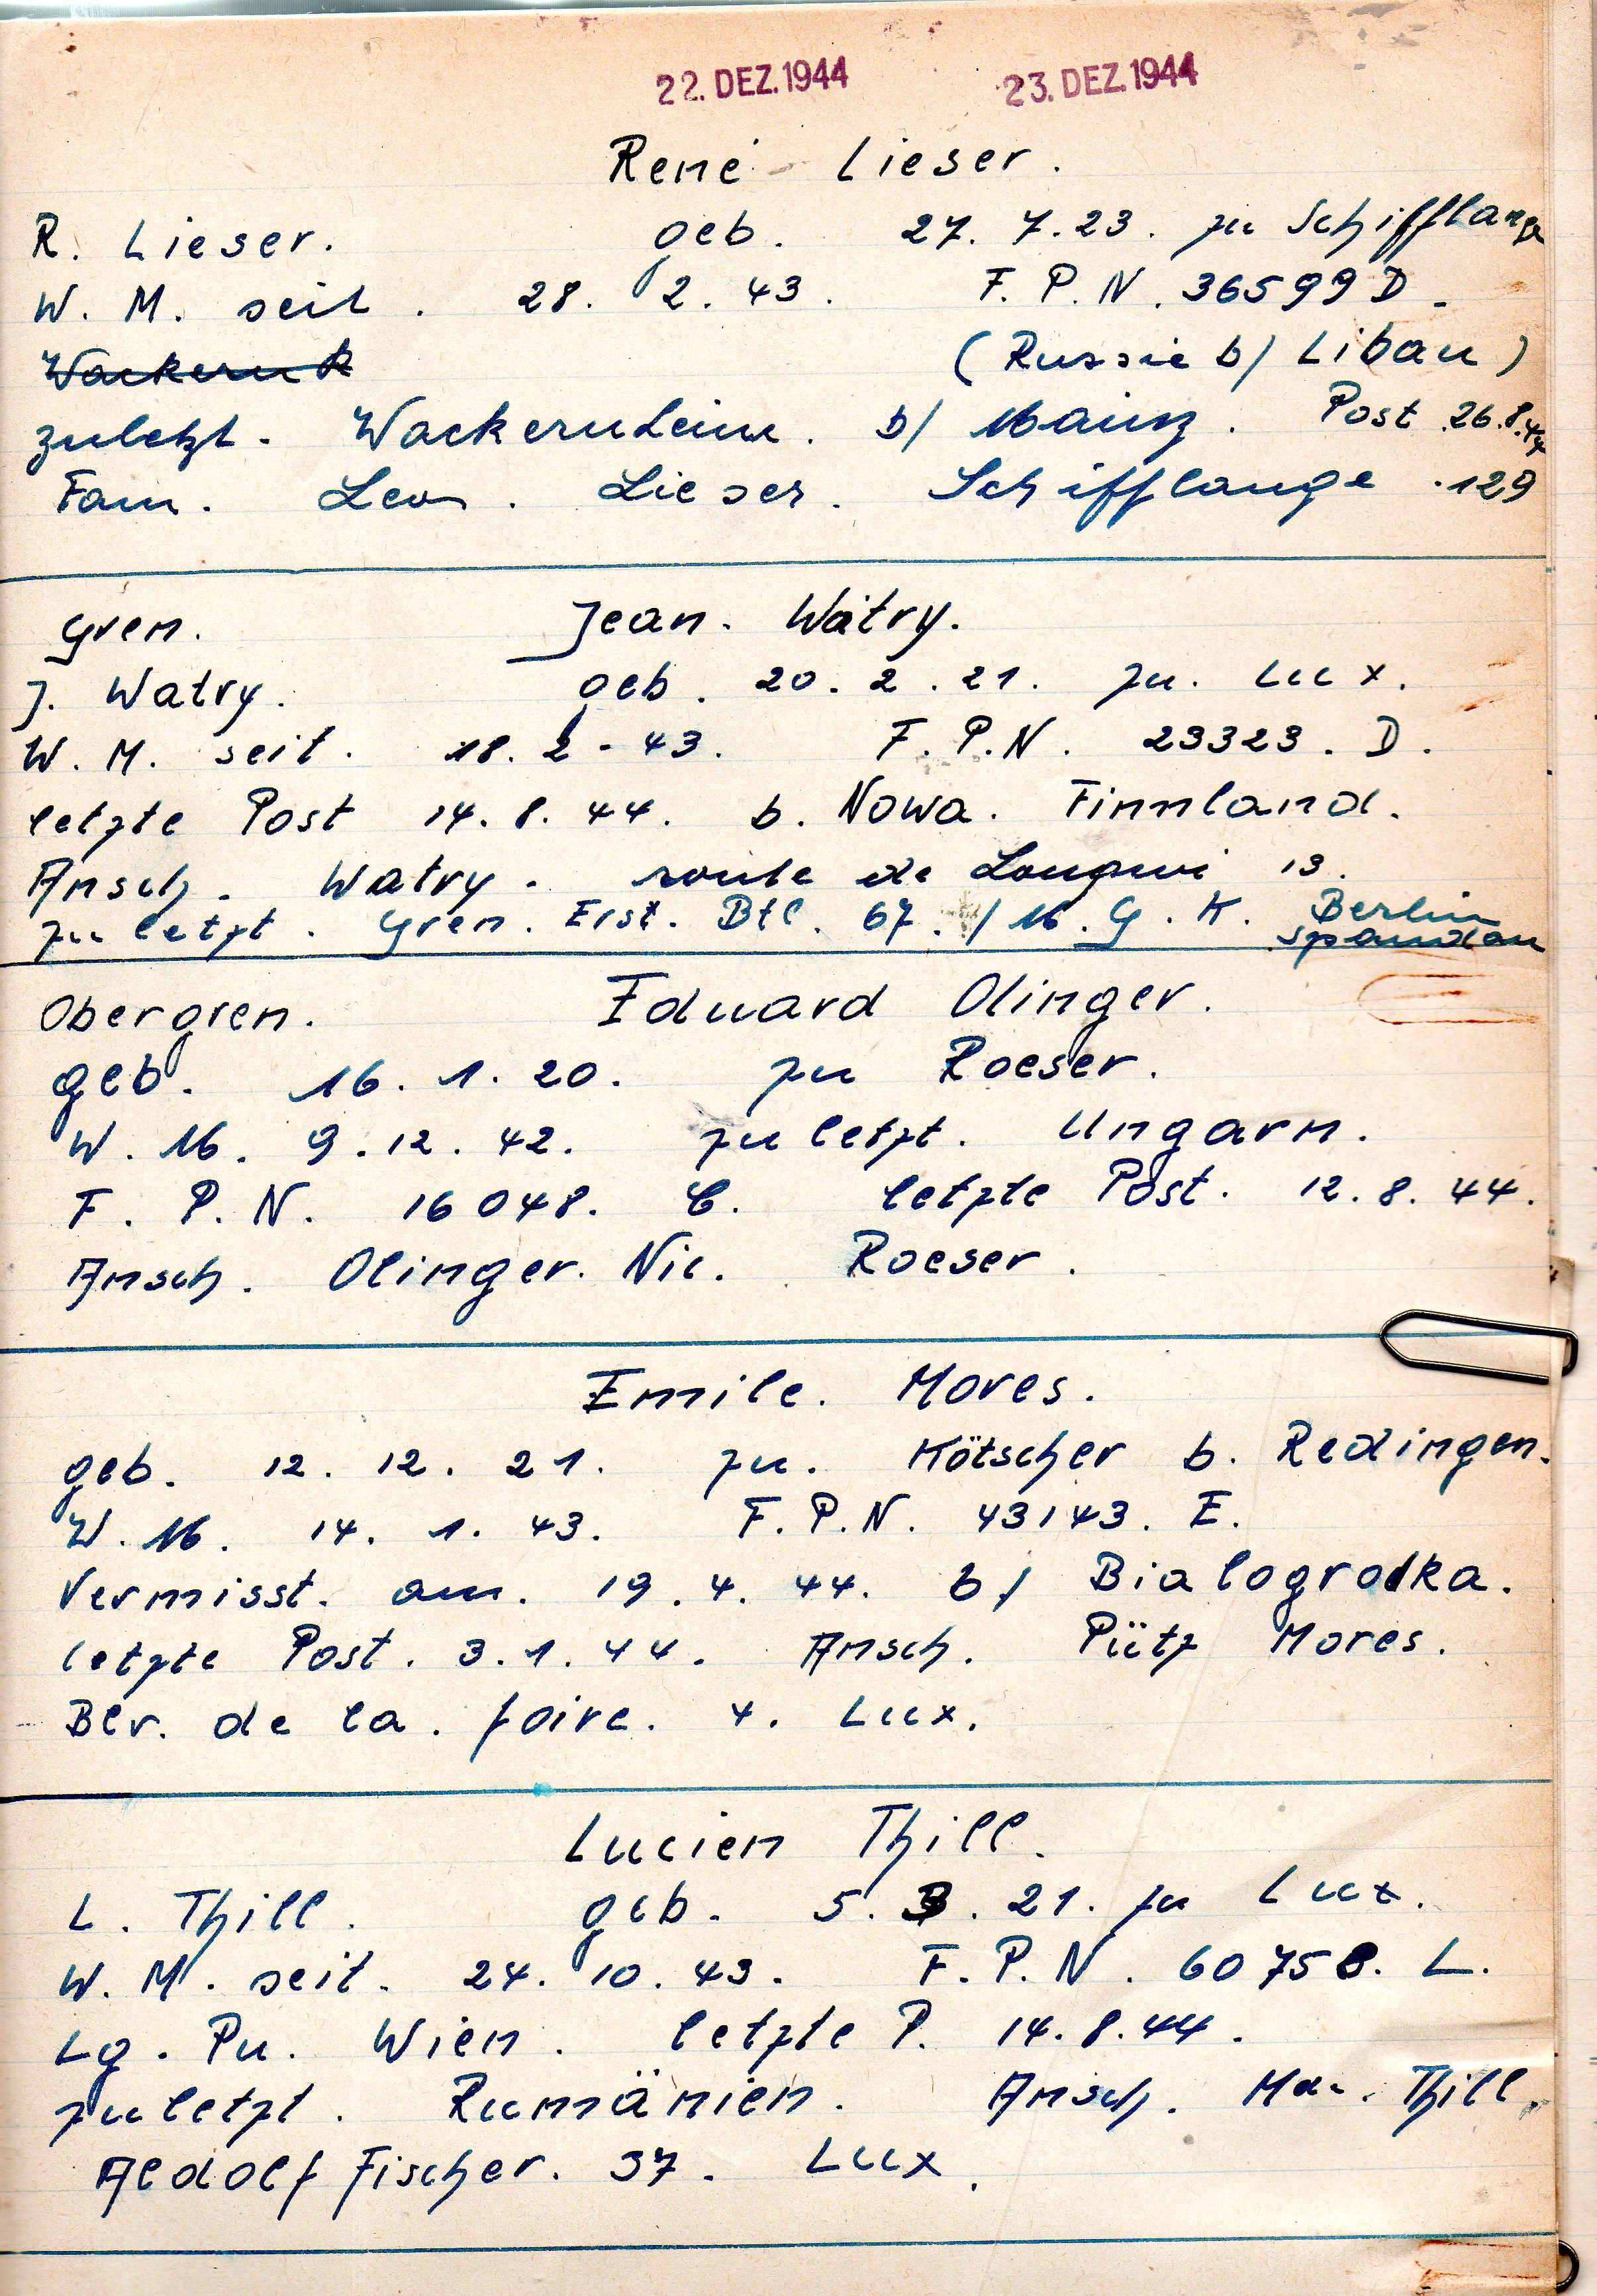 22. DEZ. 1944 23. DEZ. 1944
René Lieser.
R. Lieser. geb. 27. 7. 23. zu Schifflange
W. M. seit. 28. 2. 43. F. P. N. 36599 D.
(Russie b/ Libau)
zuletzt. Wackernheim. b/ Mainz. Post 26.8.44
Fam. Leon. Lieser. Schifflange. 129
Gren. Jean. Watry.
J. Watry. geb. 20. 2. 21. zu. Lux.
W. M. seit. 18. 2 - 43. F. P. N. 23323. D.
letzte Post 14. 8. 44. b. Nowa. Finnland.
Ansch. Watry. route de Longwi 13.
zuletzt. Gren. Erst. Btl. 67. / M. G. K. Berlin
Spandau
Obergren. Eduard Olinger.
geb. 16. 1. 20. zu Roeser.
W. M. 9. 12. 42. zuletzt. Ungarn.
F. P. N. 16048. C. letzte Post. 12. 8. 44.
Ansch. Olinger. Nic. Roeser.
Emile. Mores.
geb. 12. 12. 21. zu. Kötscher b. Redingen.
W. M. 14. 1. 43. F. P. N. 43143. E.
Vermisst. am. 19. 4. 44. b/ Bialogrodka.
letzte Post. 3. 1. 44. Ansch. Pütz Mores.
Blv. de la. foire. 4. Lux.
Lucien Thill.
L. Thill. geb. 5. 3. 21. zu Lux.
W. M. seit. 24. 10. 43. F. P. N. 60758. L.
Lg. Pu. Wien. letzte P. 14. 8. 44.
zuletzt. Rumänien. Ansch. Thill.
Aldolf Fischer. 37. Lux.